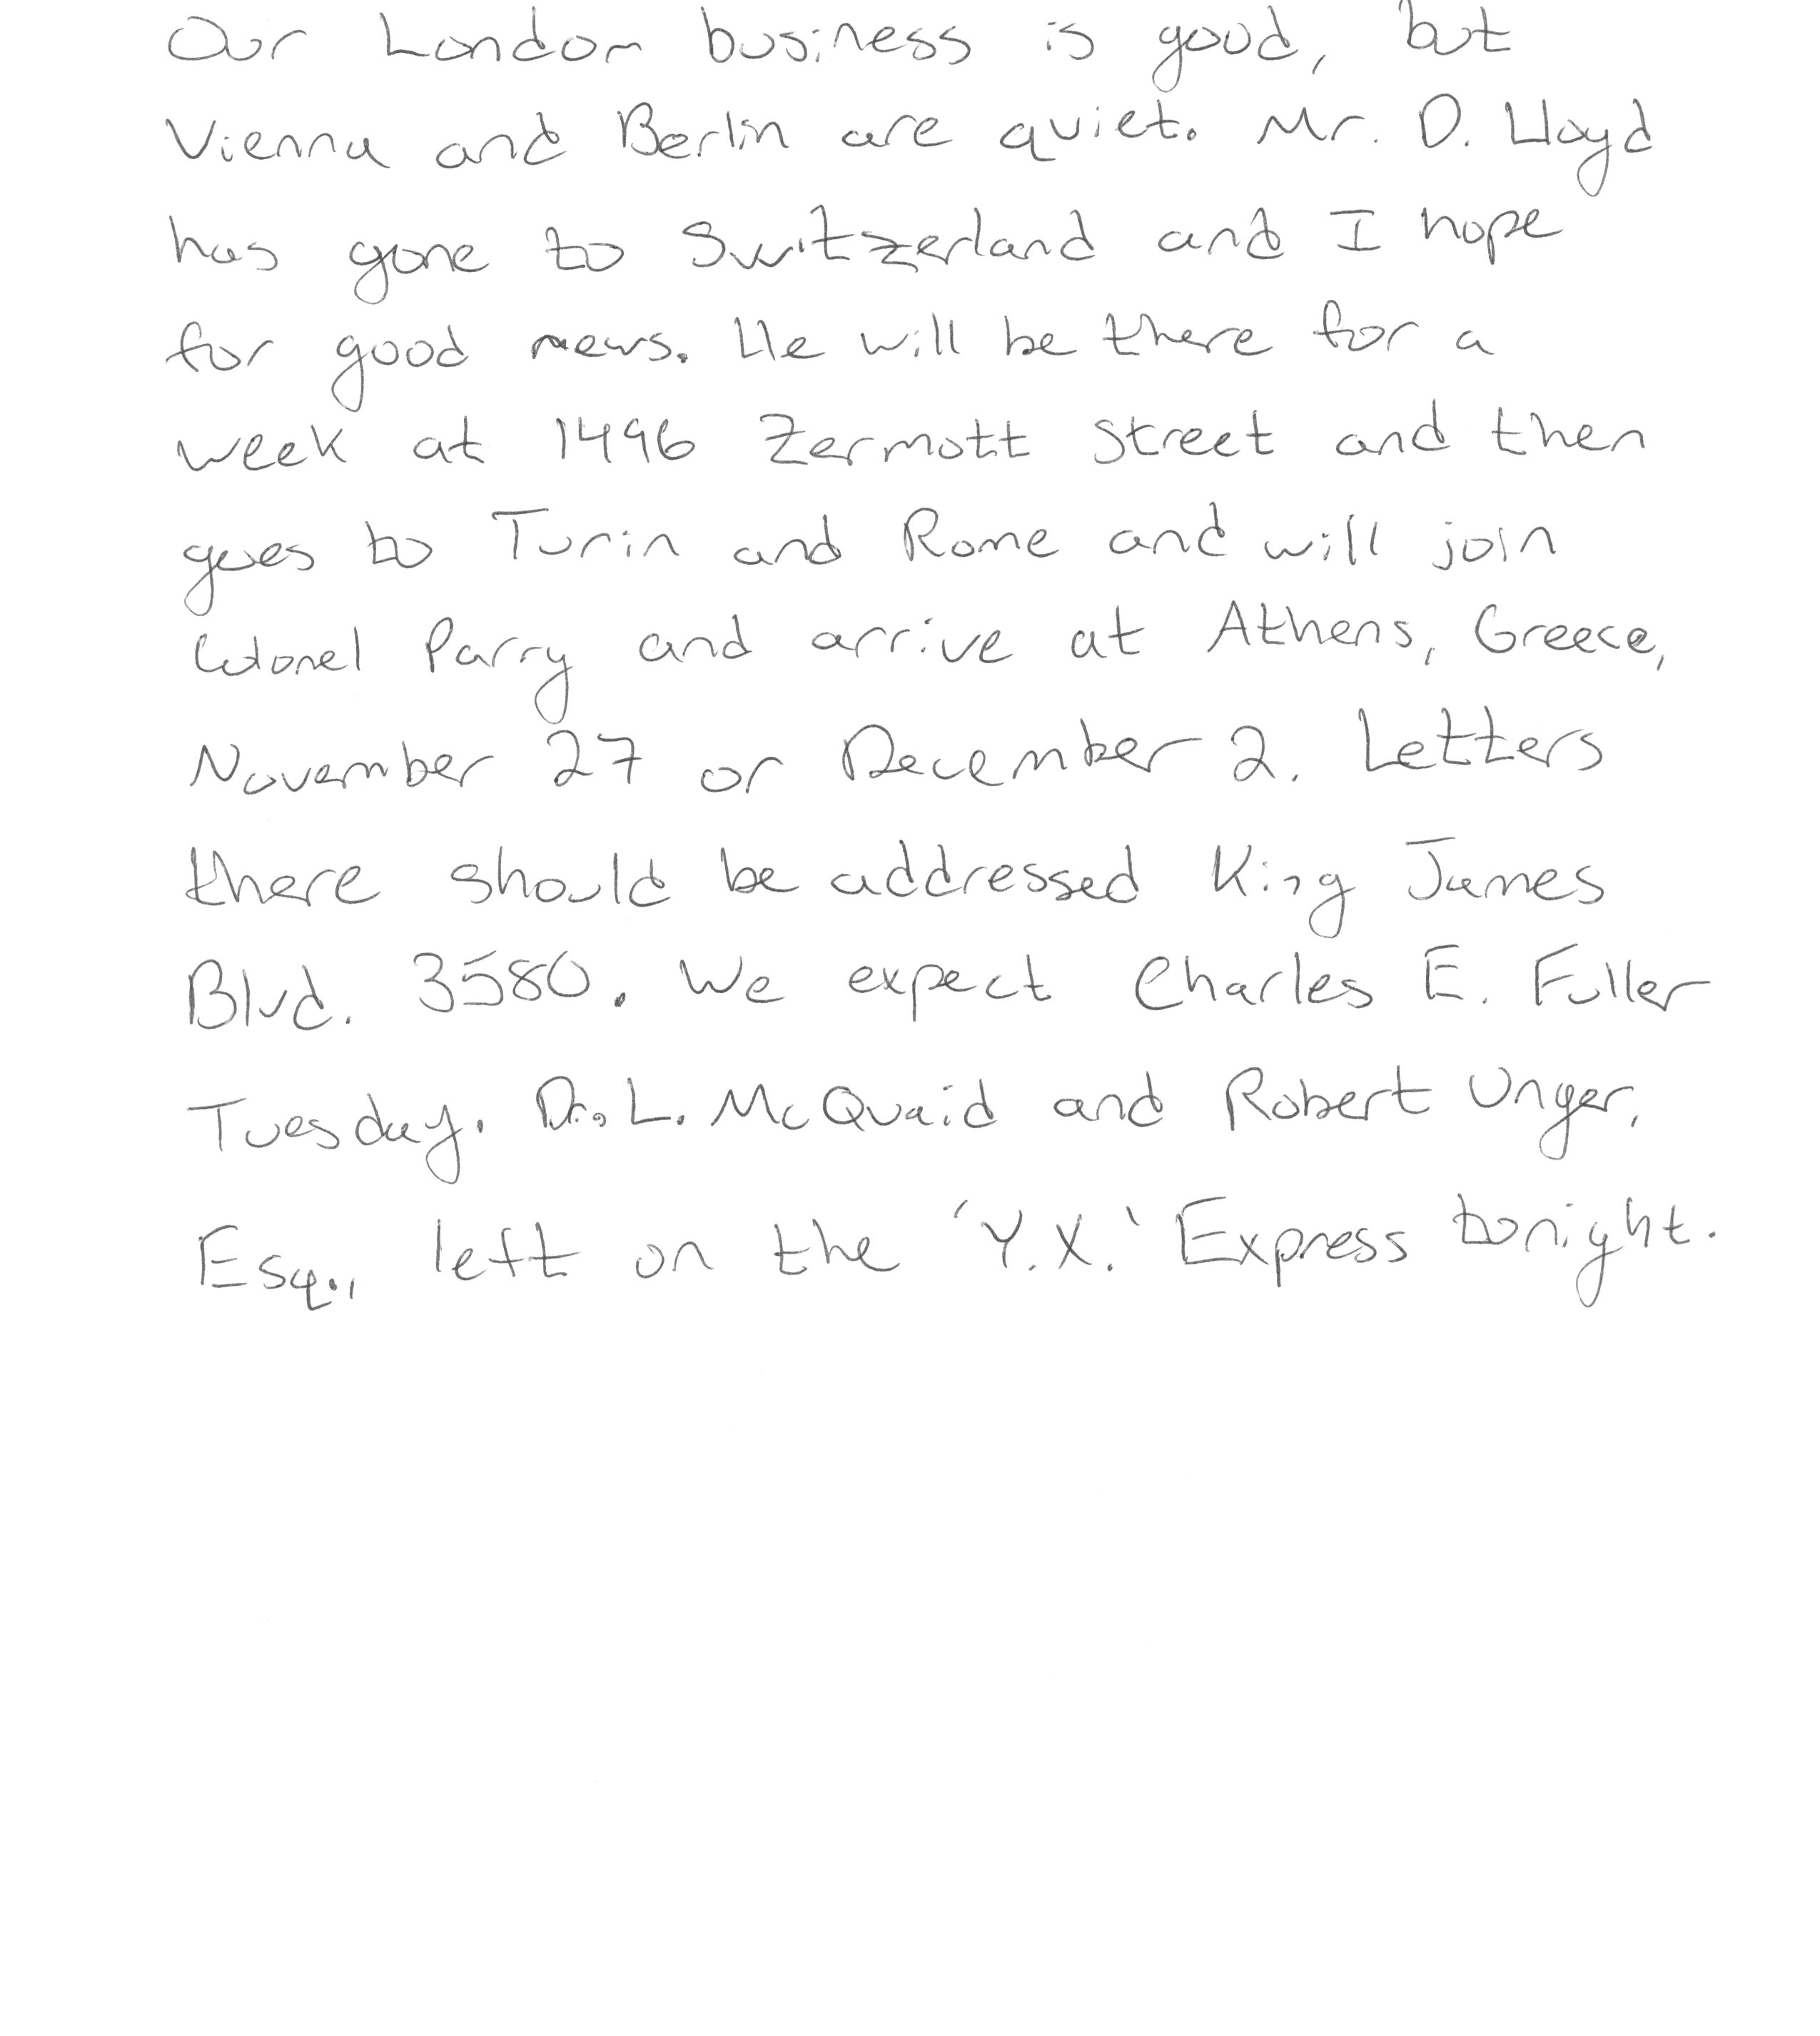 Our London business is good, but
Vienna and Berlin are quiet. Mr. D. Lloyd
has gone to Switzerland and I hope
for good news. He will be there for a
week at 1496 Zermott Street and then
goes to Turin and Rome and will join
Colonel Parry and arrive at Athens, Greece,
November 27 or December 2. Letters
there should be addressed King James
Blvd. 3580. We expect Charles E. Fuller
Tuesday. Dr. L. McQuaid and Robert Unger,
Esq., left on the 'Y.X.' Express tonight.